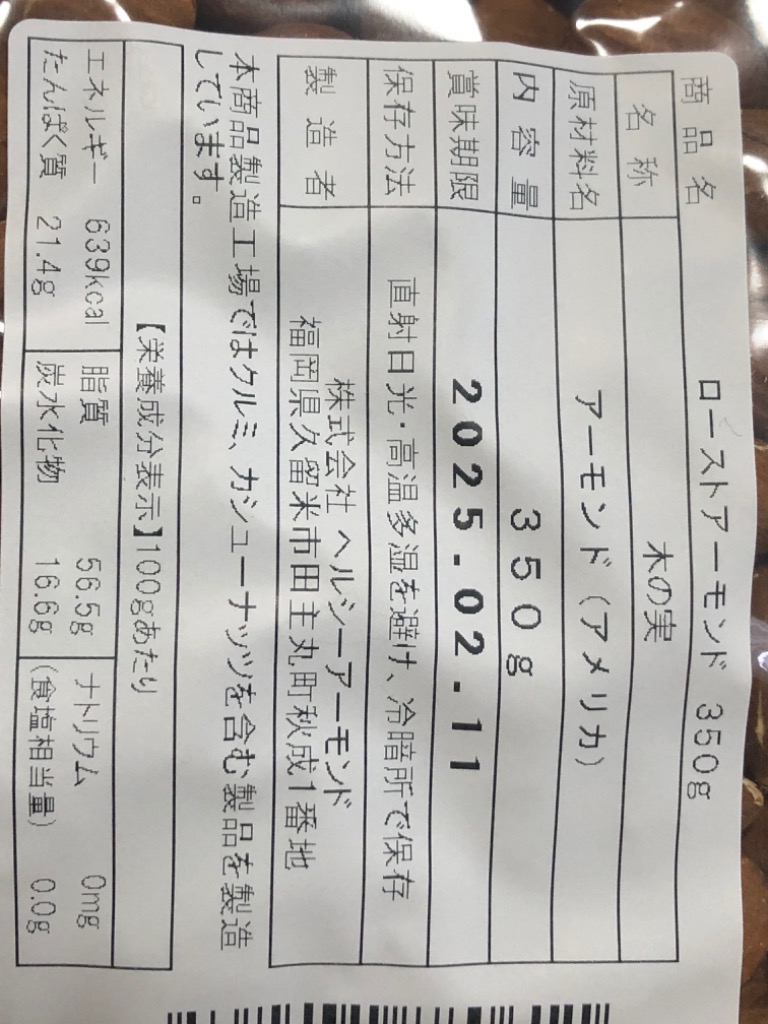 商品名 ローストアーモンド 350g
名称 木の実
原材料名 アーモンド(アメリカ)
内容量 350g
賞味期限 2025.02.11
保存方法 直射日光・高温多湿を避け、冷暗所で保存
製造者 株式会社 ヘルシーアーモンド
福岡県久留米市田主丸町秋成1番地
本商品製造工場ではクルミ、カシューナッツを含む製品を製造
しています。
【栄養成分表示】100gあたり
エネルギー 639kcal 脂質 56.5g ナトリウム 0mg
たんぱく質 21.4g 炭水化物 16.6g (食塩相当量) 0.0g